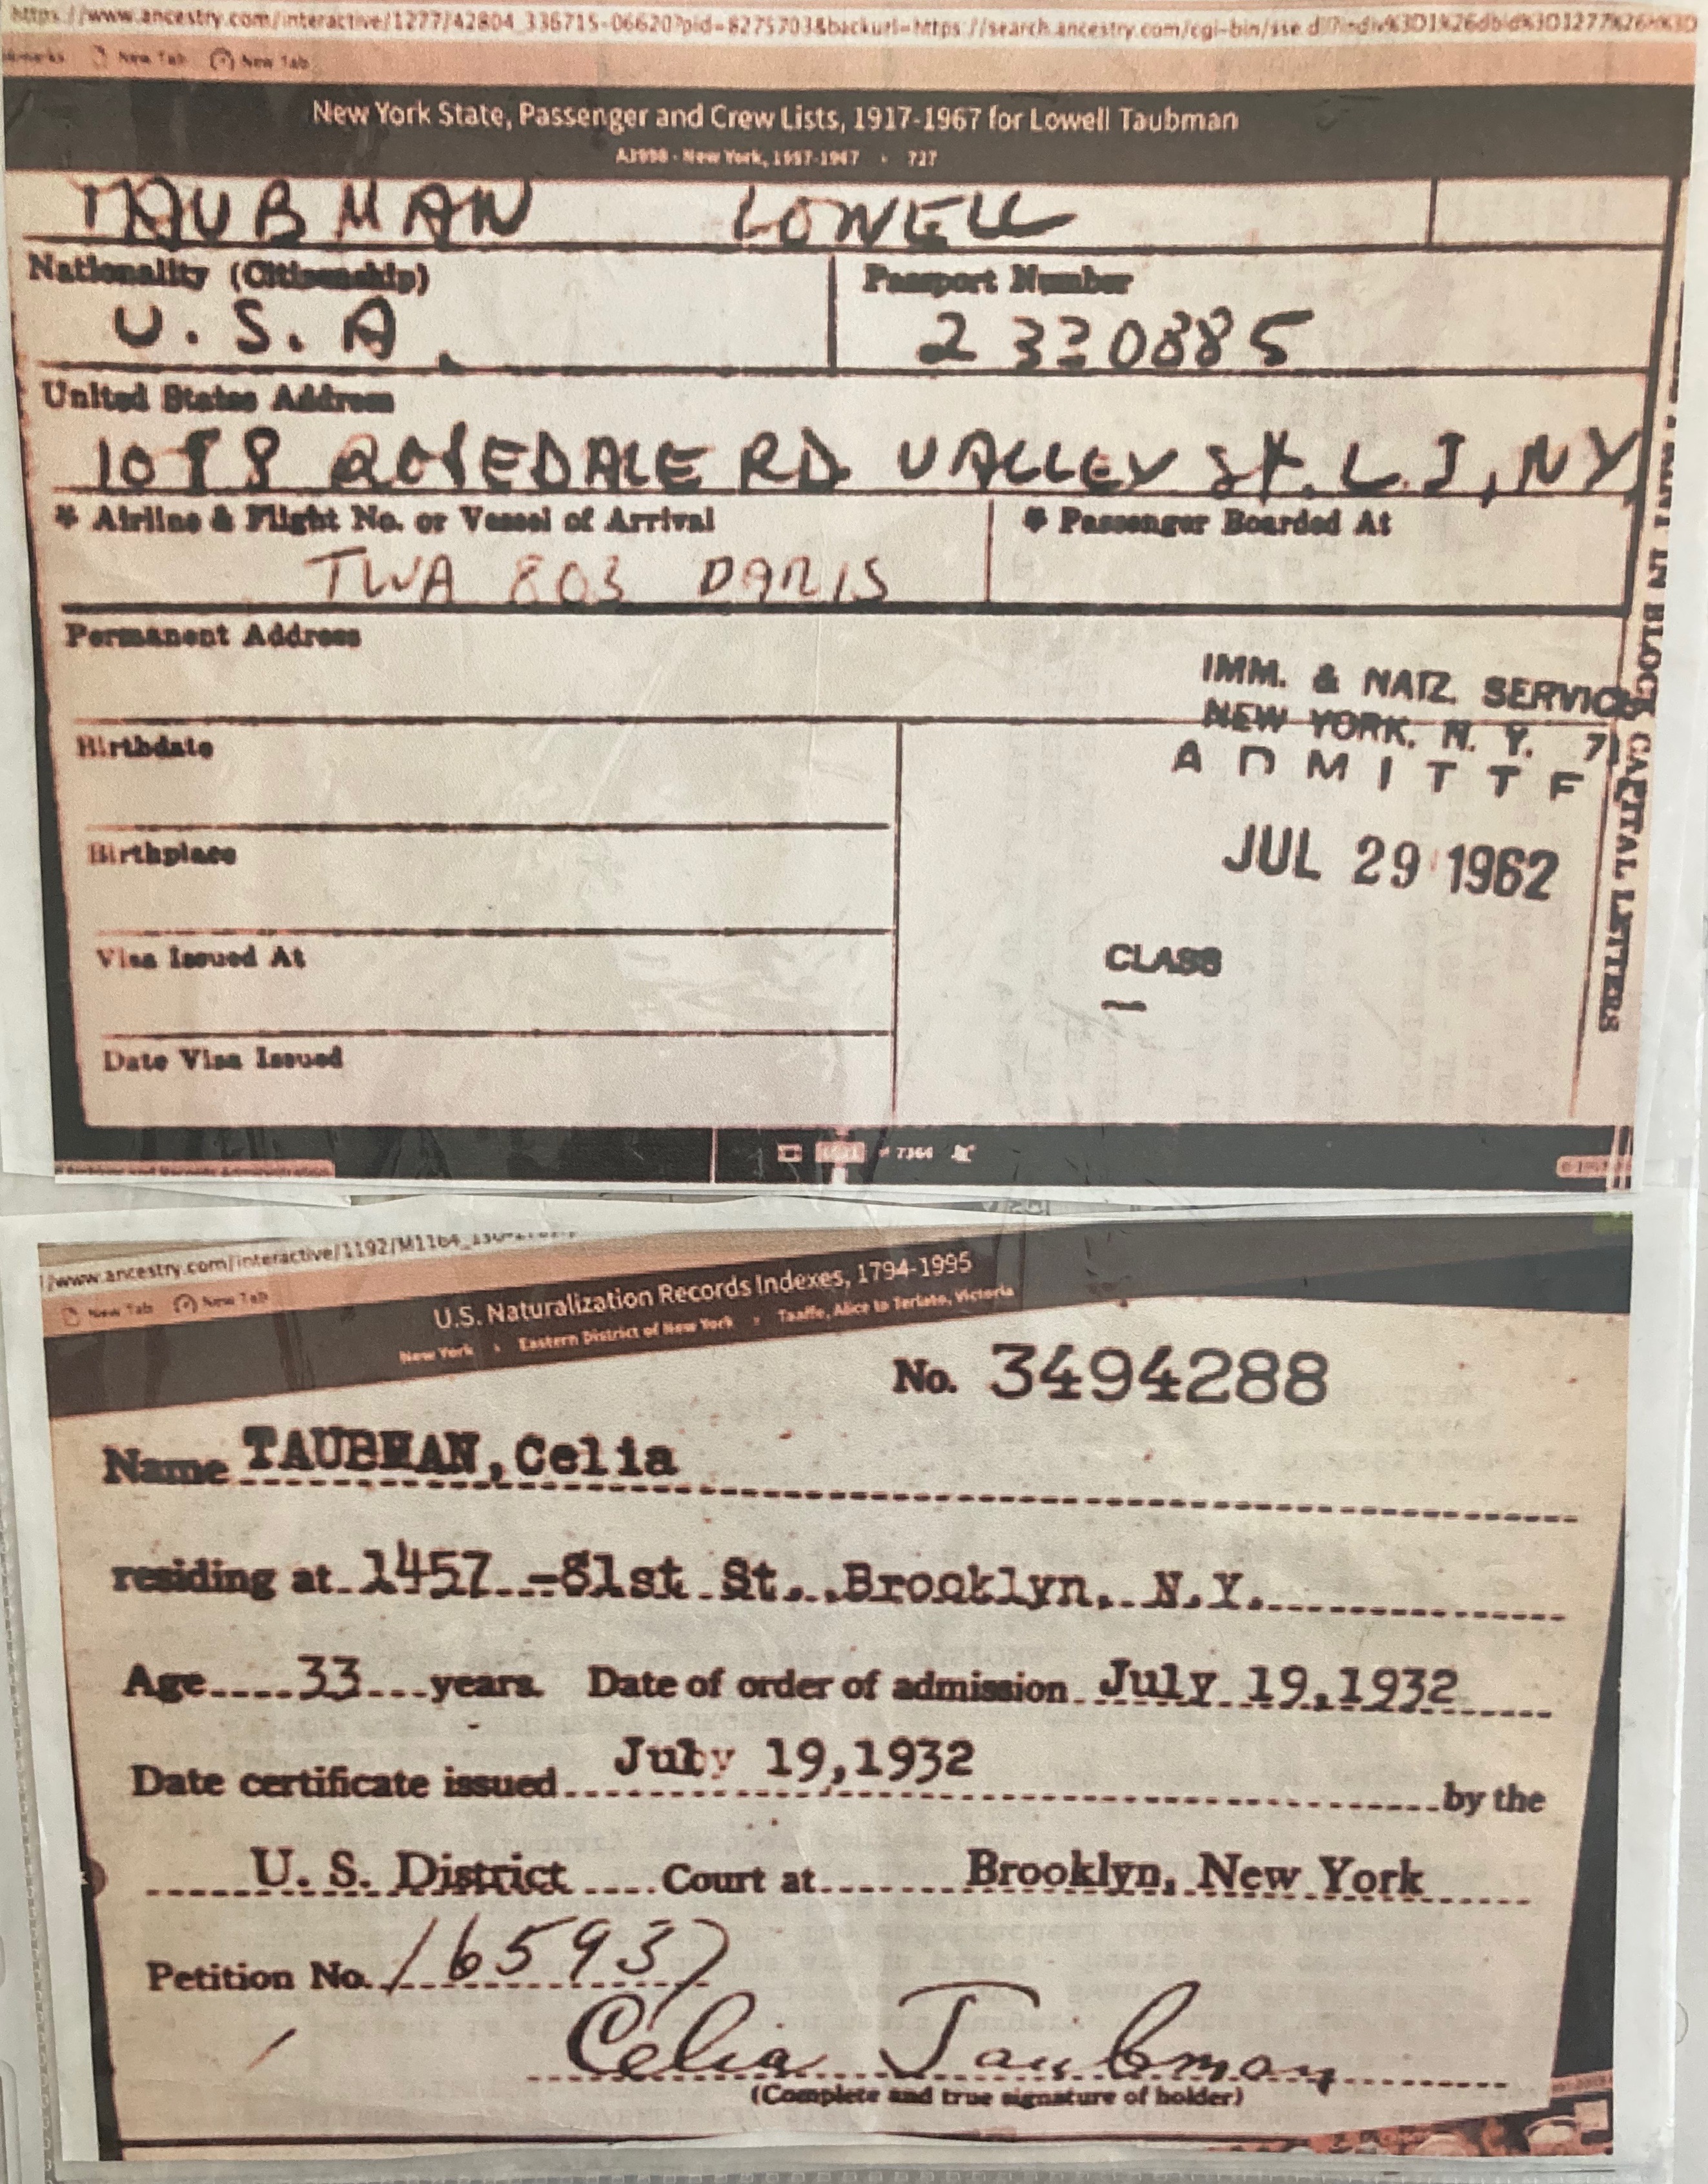 https://www.ancestry.com/interactive/1277/42804_336715-06620?pid=8275703&backurl=https://search.ancestry.com/cgi-bin/sse.dll?indiv%3D1%26dbid%3D1277%26h%3D
New Tab New Tab
New York State, Passenger and Crew Lists, 1917-1967 for Lowell Taubman
A3998 - New York, 1957-1967 › 727
TAUBMAN LOWELL
Nationality (Citizenship) Passport Number
U.S.A. 2330885
United States Address
1098 ROSEDALE RD VALLEY St. L.I, NY
* Airline & Flight No. or Vessel of Arrival * Passenger Boarded At
TWA 803 PARIS
Permanent Address
IMM. & NATZ. SERVICE
NEW YORK, N. Y. 7
Birthdate
ADMITTE
Birthplace
JUL 29 1962
Visa Issued At
CLASS
Date Visa Issued
PRINT IN BLOCK CAPITAL LETTERS
of 7366
/www.ancestry.com/interactive/1192/M1164_
New Tab New Tab
U.S. Naturalization Records Indexes, 1794-1995
New York › Eastern District of New York › Taaffe, Alice to Terlato, Victoria
No. 3494288
Name TAUBMAN, Celia
residing at 1457 -81st St., Brooklyn, N.Y.
Age 33 years. Date of order of admission July 19,1932
Date certificate issued July 19,1932 by the
U. S. District Court at Brooklyn, New York
Petition No. 165937
Celia Taubman
(Complete and true signature of holder)